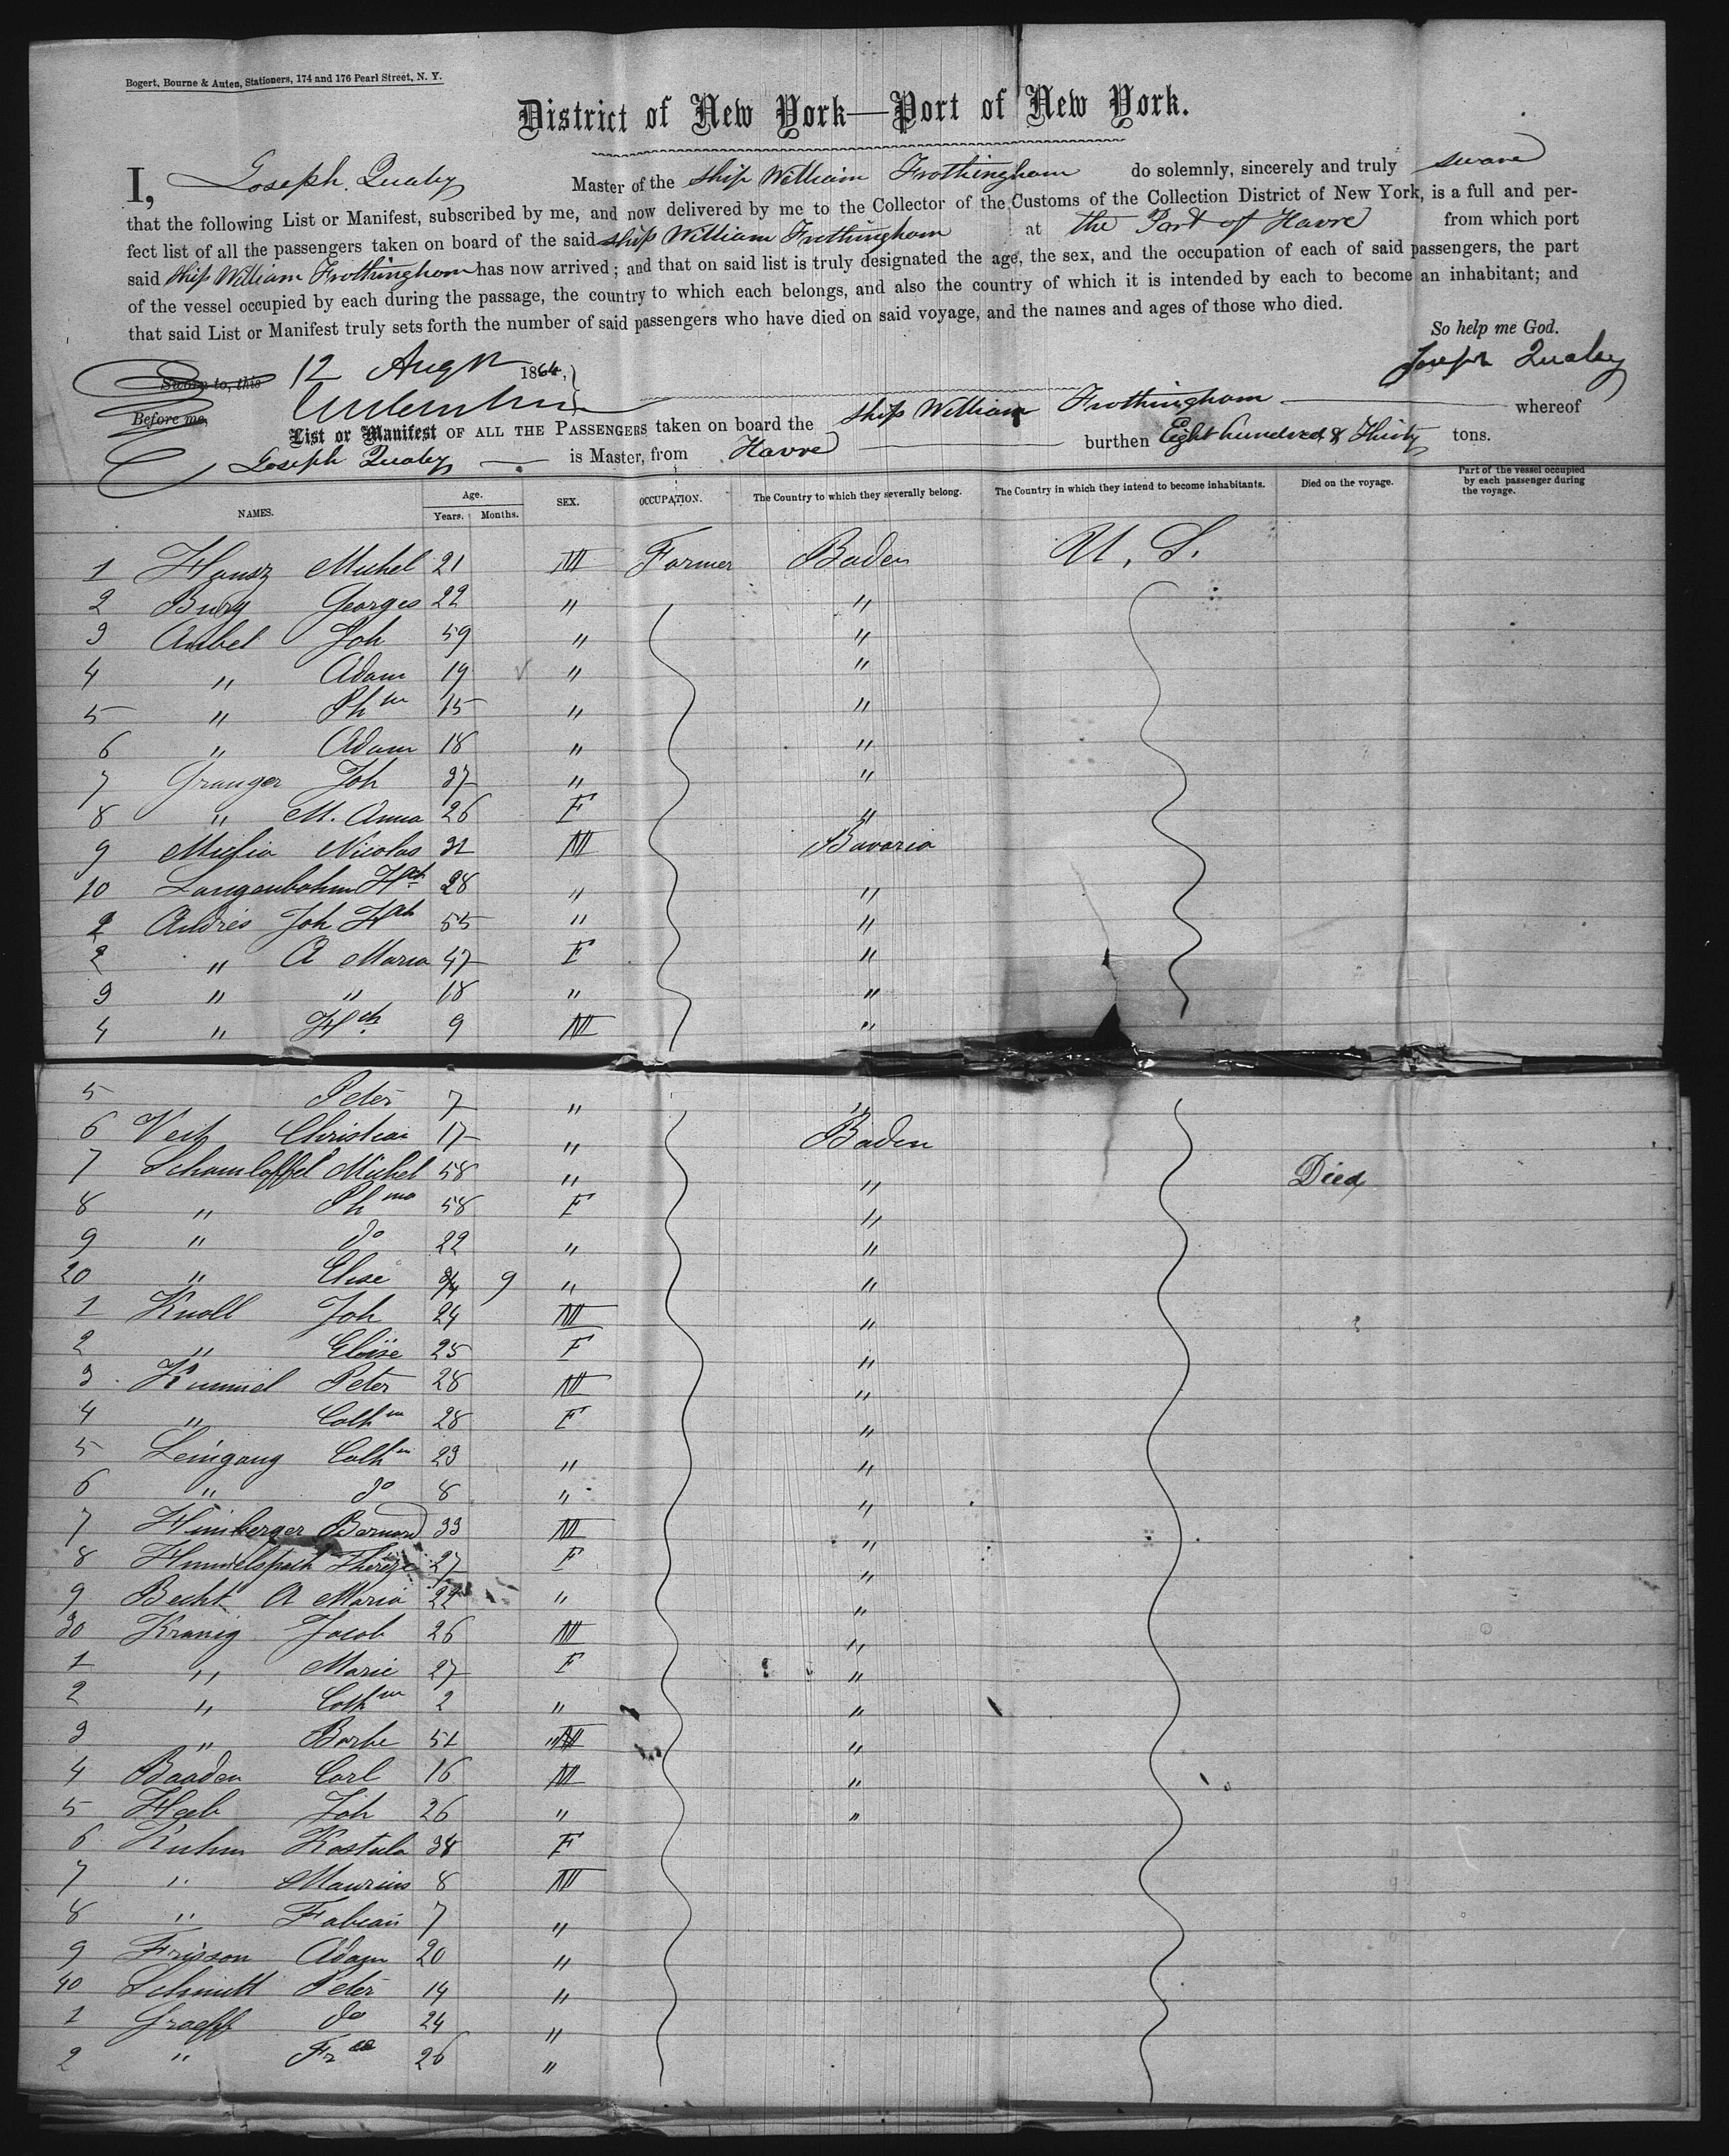 Bogert, Bourne & Auten, Stationers, 174 and 176 Pearl Street, N. Y.
District of New York—Port of New York.
I, Joseph Qualey Master of the ship William Frothingham do solemnly, sincerely and truly sware
that the following List or Manifest, subscribed by me, and now delivered by me to the Collector of the Customs of the Collection District of New York, is a full and per-
fect list of all the passengers taken on board of the said ship William Frothingham at the Port of Havre from which port
said Ship William Frothingham has now arrived; and that on said list is truly designated the age, the sex, and the occupation of each of said passengers, the part
of the vessel occupied by each during the passage, the country to which each belongs, and also the country of which it is intended by each to become an inhabitant; and
that said List or Manifest truly sets forth the number of said passengers who have died on said voyage, and the names and ages of those who died.
So help me God.
Sworn to, this 12 Augt 1864, Joseph Qualey
Before me,
List or Manifest OF ALL THE PASSENGERS taken on board the ship William Frothingham whereof
Joseph Qualey is Master, from Havre burthen Eight hundred & Thirty tons.
NAMES. Age. Years. Months. SEX. OCCUPATION. The Country to which they severally belong. The Country in which they intend to become inhabitants. Died on the voyage. Part of the vessel occupied by each passenger during the voyage.
1 Hansz Michel 21 M Farmer Baden U. S.
2 Burg Georges 22 " "
3 Aubel Joh 59 " "
4 " Adam 19 " "
5 " Ph 15 " "
6 " Adam 18 " "
7 Granger Joh 37 " "
8 " M. Anna 26 F "
9 Nicolas 31 M Bavaria
10 Langenbahn Hch 28 " "
2 Andres Joh Hch 55 " "
2 " A Maria 47 F "
3 " " 18 " "
4 " Hch 9 M "
5 Peter 7 " "
6 Veit Christian 17 " Baden
7 Schamloffel Michel 58 " " Died
8 " Phma 58 F "
9 " do 22 " "
20 " Elise 9 " "
1 Knoll Joh 24 M "
2 " Eloise 25 F "
3 Kummel Peter 28 M "
4 " Cath 28 F "
5 Leingang Cath 23 " "
6 " do 8 " "
7 Himberger Bernard 33 M "
8 Himmelspach Thérèze 27 F "
9 Becht A Maria 22 " "
30 Kranig Jacob 26 M "
1 " Marie 27 F "
2 " Cath 2 " "
3 " Barbe 51 " M "
4 Baaden Carl 16 M "
5 Heeb Joh 26 " "
6 Kuhm Kostula 38 F
7 " Maurius 8 M
8 " Fabian 7 "
9 Frisson Adam 20 "
40 Schmitt Peter 14 "
1 Graeff do 24 "
2 " Fr 26 "